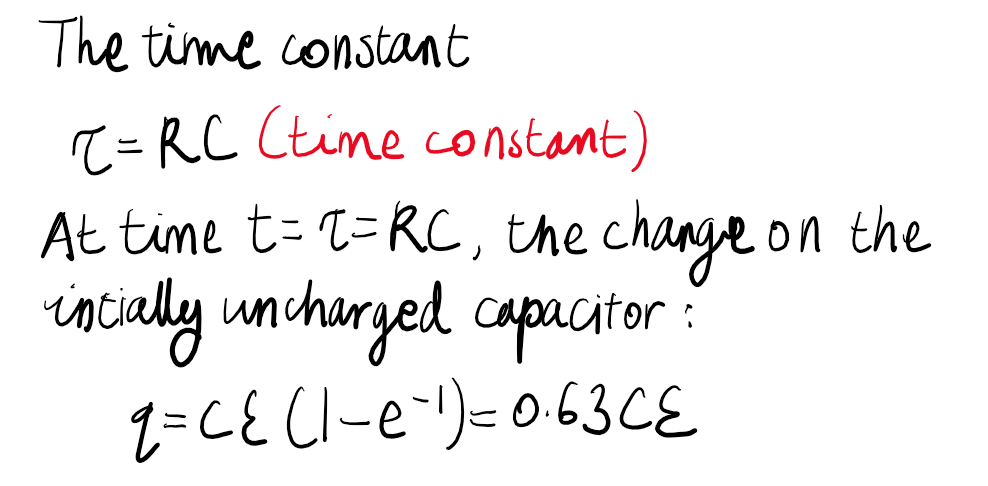 The time constant
τ = RC (time constant)
At time t = τ = RC, the change on the
intially uncharged capacitor :
q = Cℰ (1 - e⁻¹) = 0.63 Cℰ